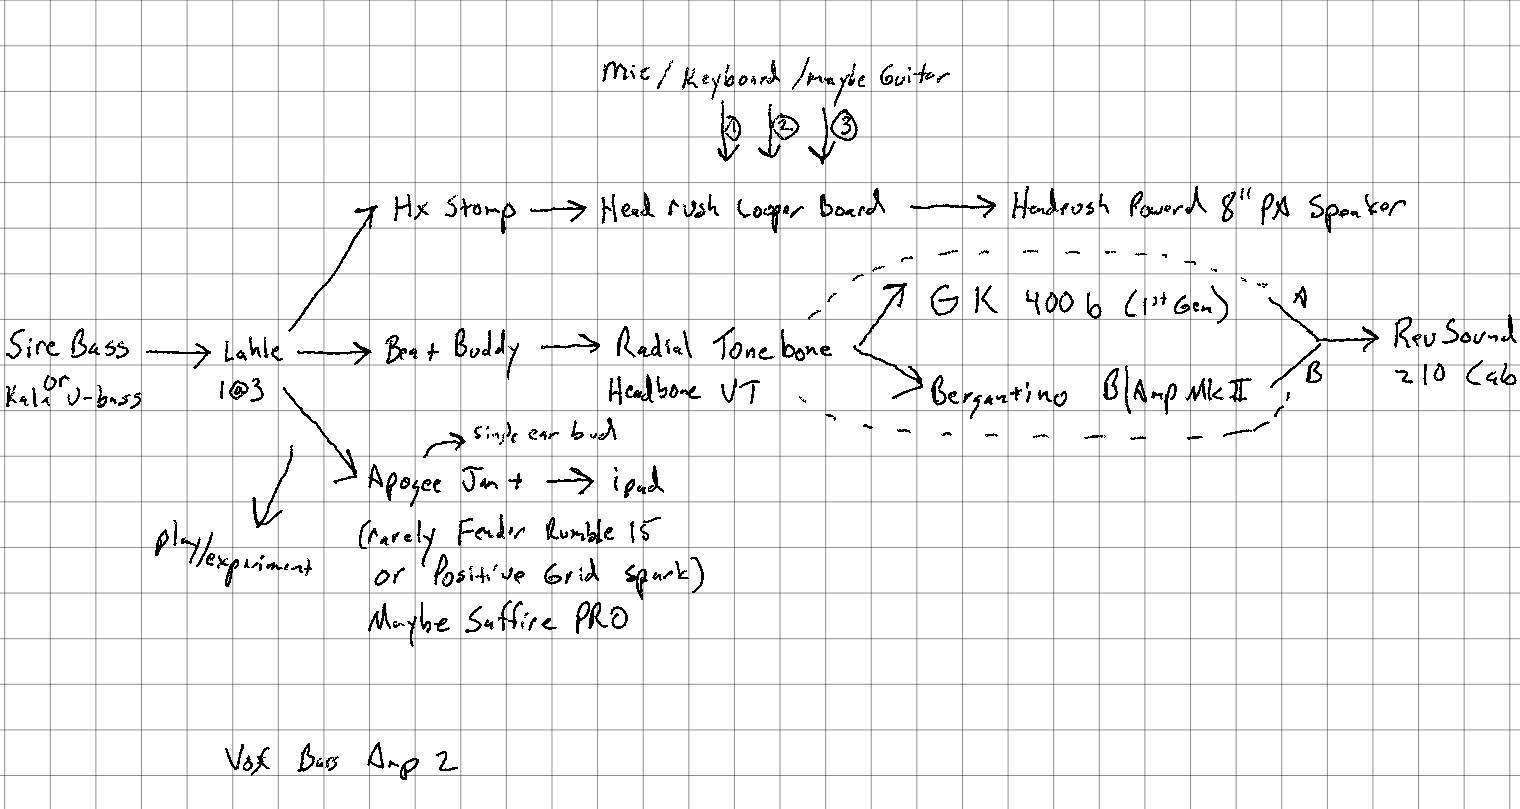 Mic / Keyboard / maybe Guitar
1 2 3
Hx Stomp → Headrush Looper Board → Headrush Powerd 8" PA Speaker
GK 400b (1st Gen) A
Sire Bass → Lahle → Beat Buddy → Radial Tonebone → Rev Sound
or
Kala U-bass 1@3 Headbone VT Bergantino B|Amp MkII B 210 Cab
single ear bud
Apogee Jam + → ipad
play/experiment (rarely Fender Rumble 15
or Positive Grid Spark)
Maybe Saffire PRO
Vox Bass Amp 2